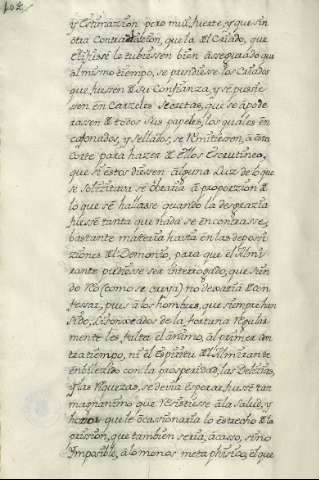 102
y estimazion pero mui fuerte, y que sin
otra Contradizion, que la del Criado, que
el hiziese lo tubiessen bien assegurado que
al mismo tiempo, se prendiesse los Criados
que fuesen de su Confianza, y se pusie-
ssen en Carzeles secretas, que se apode-
rassen de todos sus papeles, los quales en
caxonados, y sellados, se remitiessen, a esta
corte para hazer de ellos Escrutineo,
que si estos diessen alguna Luz de lo que
se solizitava se obraria a proporzion de
lo que se hallasse quando la desgrazia
fuesse tanta que nada se encontrasse,
bastante materia havia en las deposi-
ziones del Demonio, para que el Almi-
rante pudiesse ser interrogado, que sien-
do Reo (como se creya) no dexaria de con
fessar, pues a los hombres, que siempre han
sido, lisonxeados de la fortuna regular-
mente les falta el animo, al primer con
tratiempo, ni el Espiritu del Almirante
enbilezido con la prosperidad, las Delizias,
y las Riquezas, se devia esperar fuesse tan
magnanimo que resistiesse a la salud, y
horror que le ocassionaria lo estrecho de la
prission, que tambien seria, acasso, sino
Imposible, a lo menos metaphisico, el que